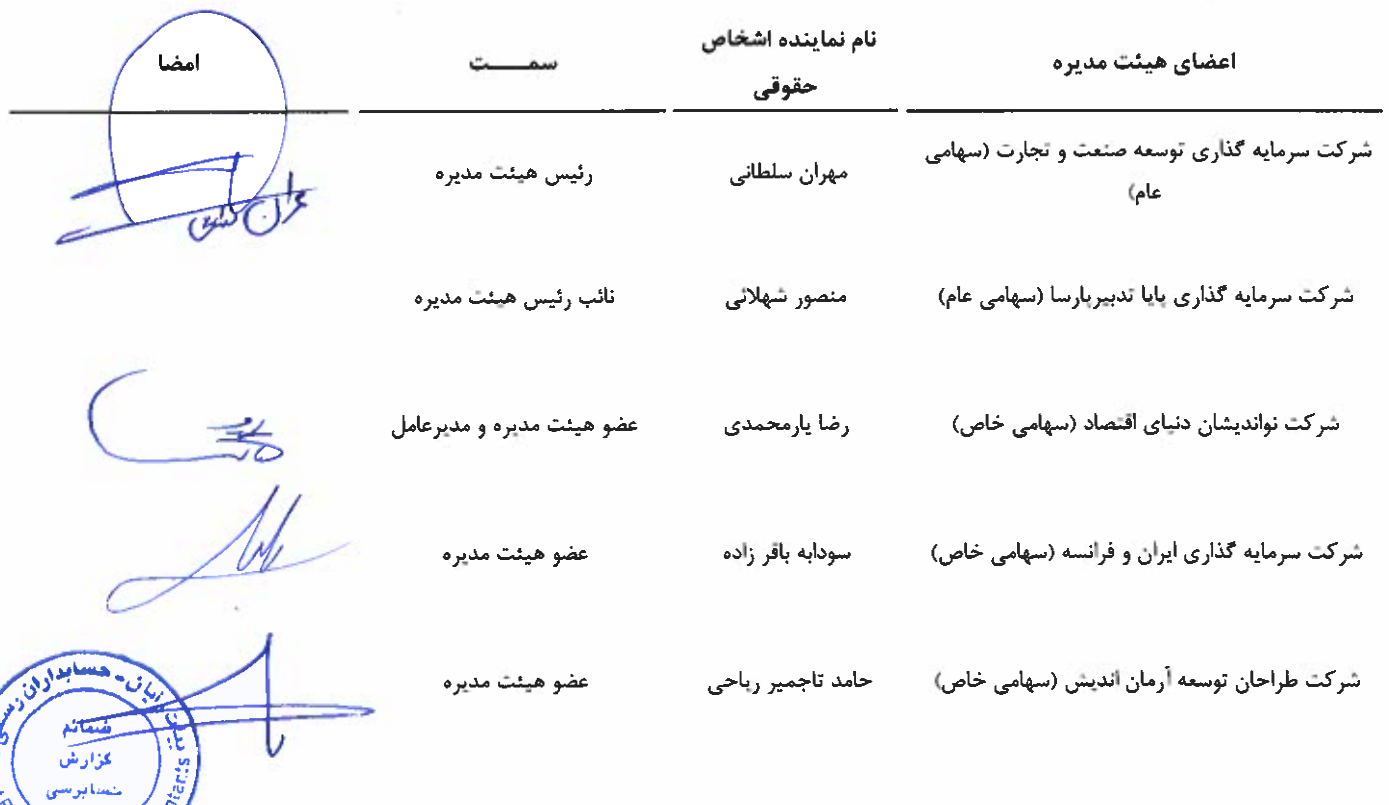 اعضای هیئت مدیره
نام نماینده اشخاص
حقوقی
سمـــــت
امضا
شرکت سرمایه گذاری توسعه صنعت و تجارت (سهامی
عام)
مهران سلطانی
رئیس هیئت مدیره
شرکت سرمایه گذاری پایا تدبیرپارسا (سهامی عام)
منصور شهلائی
نائب رئیس هیئت مدیره
شرکت نواندیشان دنیای اقتصاد (سهامی خاص)
رضا یارمحمدی
عضو هیئت مدیره و مدیرعامل
شرکت سرمایه گذاری ایران و فرانسه (سهامی خاص)
سودابه باقر زاده
عضو هیئت مدیره
شرکت طراحان توسعه آرمان اندیش (سهامی خاص)
حامد تاجمیر ریاحی
عضو هیئت مدیره
حسابداران
ضمائم
گزارش
حسابرسی